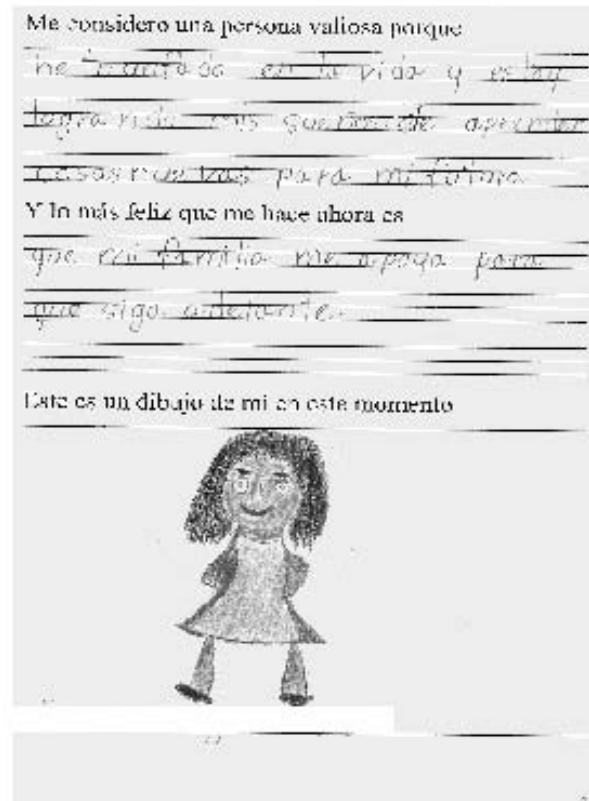 Me considero una persona valiosa porque
he triunfado en la vida y estoy
logrando mis sueños de aprender
cosas nuevas para mi futuro
Y lo más feliz que me hace ahora es
que mi familia me apoya para
que siga adelante.
Este es un dibujo de mi en este momento